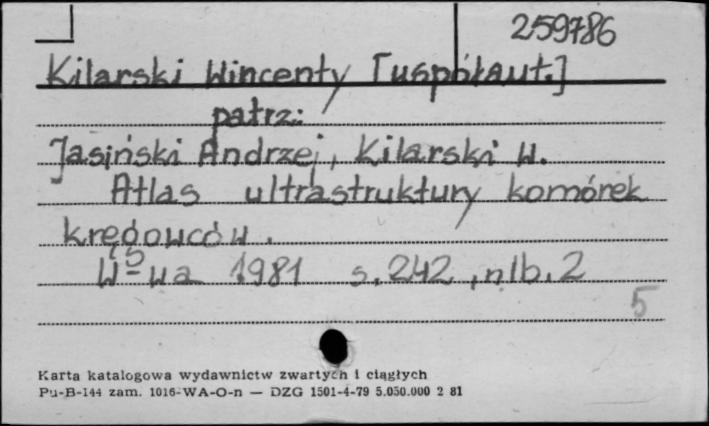 259786
Kilarski Wincenty [współaut.]
patrz:
Jasiński Andrzej, Kilarski W.
Atlas ultrastruktury komórek
kręgowców.
W-wa 1981 s. 242, nlb. 2
5
Karta katalogowa wydawnictw zwartych i ciągłych
Pu-B-144 zam. 1016-WA-O-n — DZG 1501-4-79 5.050.000 2 81